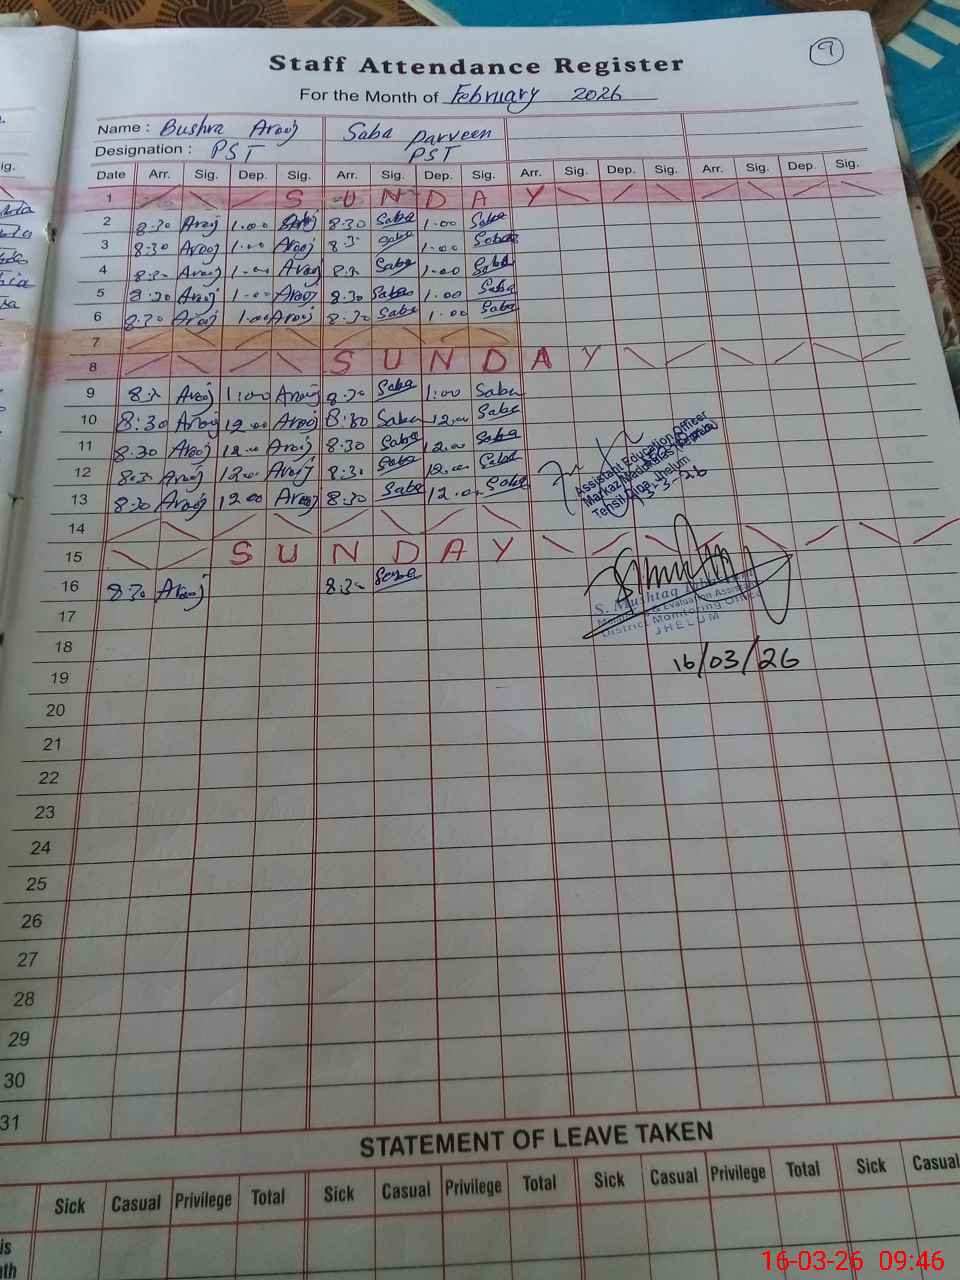 9
Staff Attendance Register
For the Month of February 2026
Name : Bushra Arooj Saba Parveen
Designation : PST PST
Date Arr. Sig. Dep. Sig. Arr. Sig. Dep. Sig. Arr. Sig. Dep. Sig. Arr. Sig. Dep. Sig.
1 S U N D A Y
2 8:30 Arooj 1.00 Arooj 8:30 Saba 1.00 Saba
3 8:30 Arooj 1.00 Arooj 8:3 Saba 1.00 Saba
4 8:30 Arooj 1.00 Arooj 8:30 Saba 1.00 Saba
5 8:30 Arooj 1.00 Arooj 8:30 Saba 1.00 Saba
6 8:30 Arooj 1.00 Arooj 8:30 Saba 1.00 Saba
7
8 S U N D A Y
9 8:30 Arooj 1:00 Arooj 8:30 Saba 1:00 Saba
10 8:30 Arooj 12.00 Arooj 8:30 Saba 12.00 Saba
11 8:30 Arooj 12.00 Arooj 8:30 Saba 12.00 Saba
12 8:30 Arooj 12.00 Arooj 8:30 Saba 12.00 Saba
13 8:30 Arooj 12 00 Arooj 8:30 Saba 12.00 Saba
Assistant Education Officer
Markaz
Tehsil Dina, Jhelum
3-3-26
14
15 S U N D A Y
16 8:30 Arooj 8:30 Saba
S. Mushtaq
Monitoring & Evaluation Assistant
District Monitoring Office
JHELUM
16/03/26
17
18
19
20
21
22
23
24
25
26
27
28
29
30
31
STATEMENT OF LEAVE TAKEN
Sick Casual Privilege Total Sick Casual Privilege Total Sick Casual Privilege Total Sick Casual
16-03-26 09:46